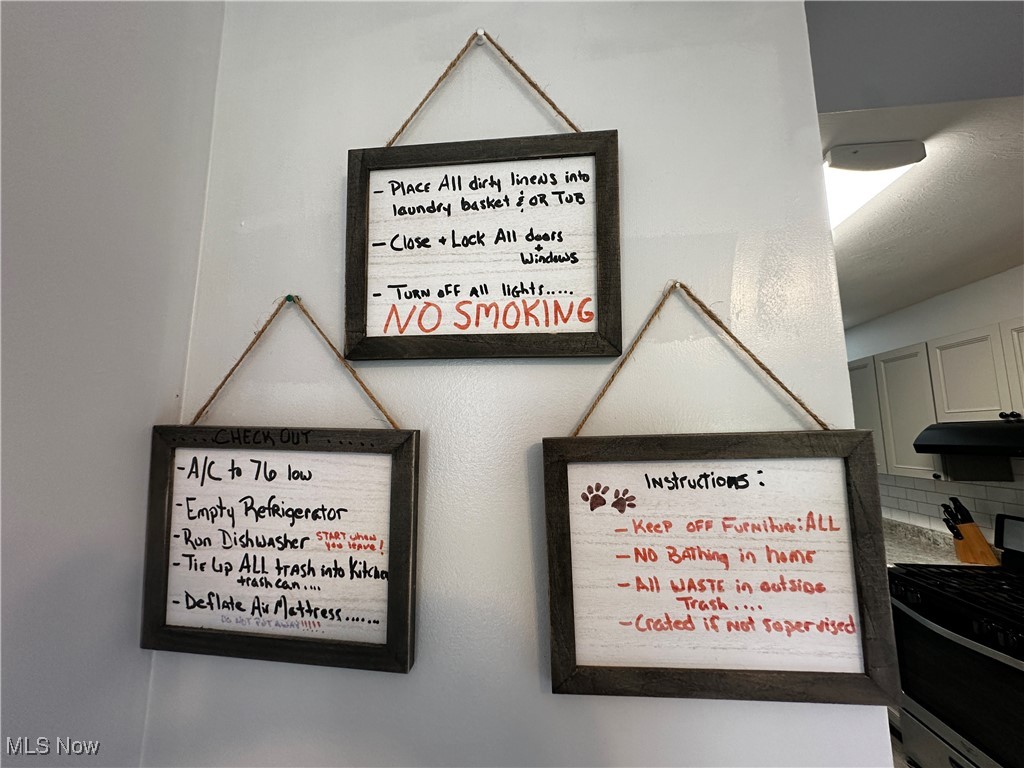 - PLACE All dirty linens into
laundry basket & OR TUB
- Close + Lock All doors
+
Windows
- TURN OFF All lights.....
NO SMOKING
..... CHECK OUT .....
- A/C to 76 low
- Empty Refrigerator
- Run Dishwasher START when
you leave!
- Tie Up ALL trash into Kitchen
trash can....
- Deflate Air Mattress.......
DO NOT PUT AWAY!!!!!
Instructions:
- Keep OFF Furniture: ALL
- NO BAthing in home
- All WASTE in outside
Trash....
- Crated if Not supervised
MLS Now